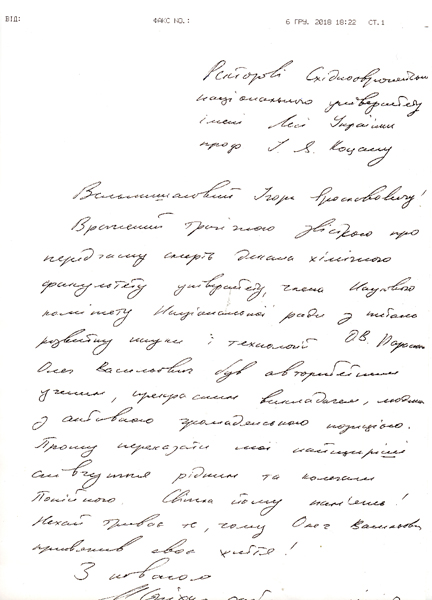 ВІД: ФАКС NO.: 6 ГРУ. 2018 18:22 СТ.1
Ректорові Східноєвропейського
національного університету
імені Лесі Українки
проф І. Я. Коцану
Вельмишановний Ігоре Ярославовичу!
Вражений трагічною звісткою про
передчасну смерть декана хімічного
факультету університету, члена Наукового
комітету Національної ради з питань
розвитку науки і технологій О.В. Парасюка
Олег Васильович був авторитетним
ученим, прекрасним викладачем, людиною
з активною громадянською позицією.
Прошу переказати мої найщиріші
співчуття рідним та колегам
Покійного. Світла йому пам'ять!
Нехай триває те, чому Олег Васильович
присвятив своє життя!
З повагою